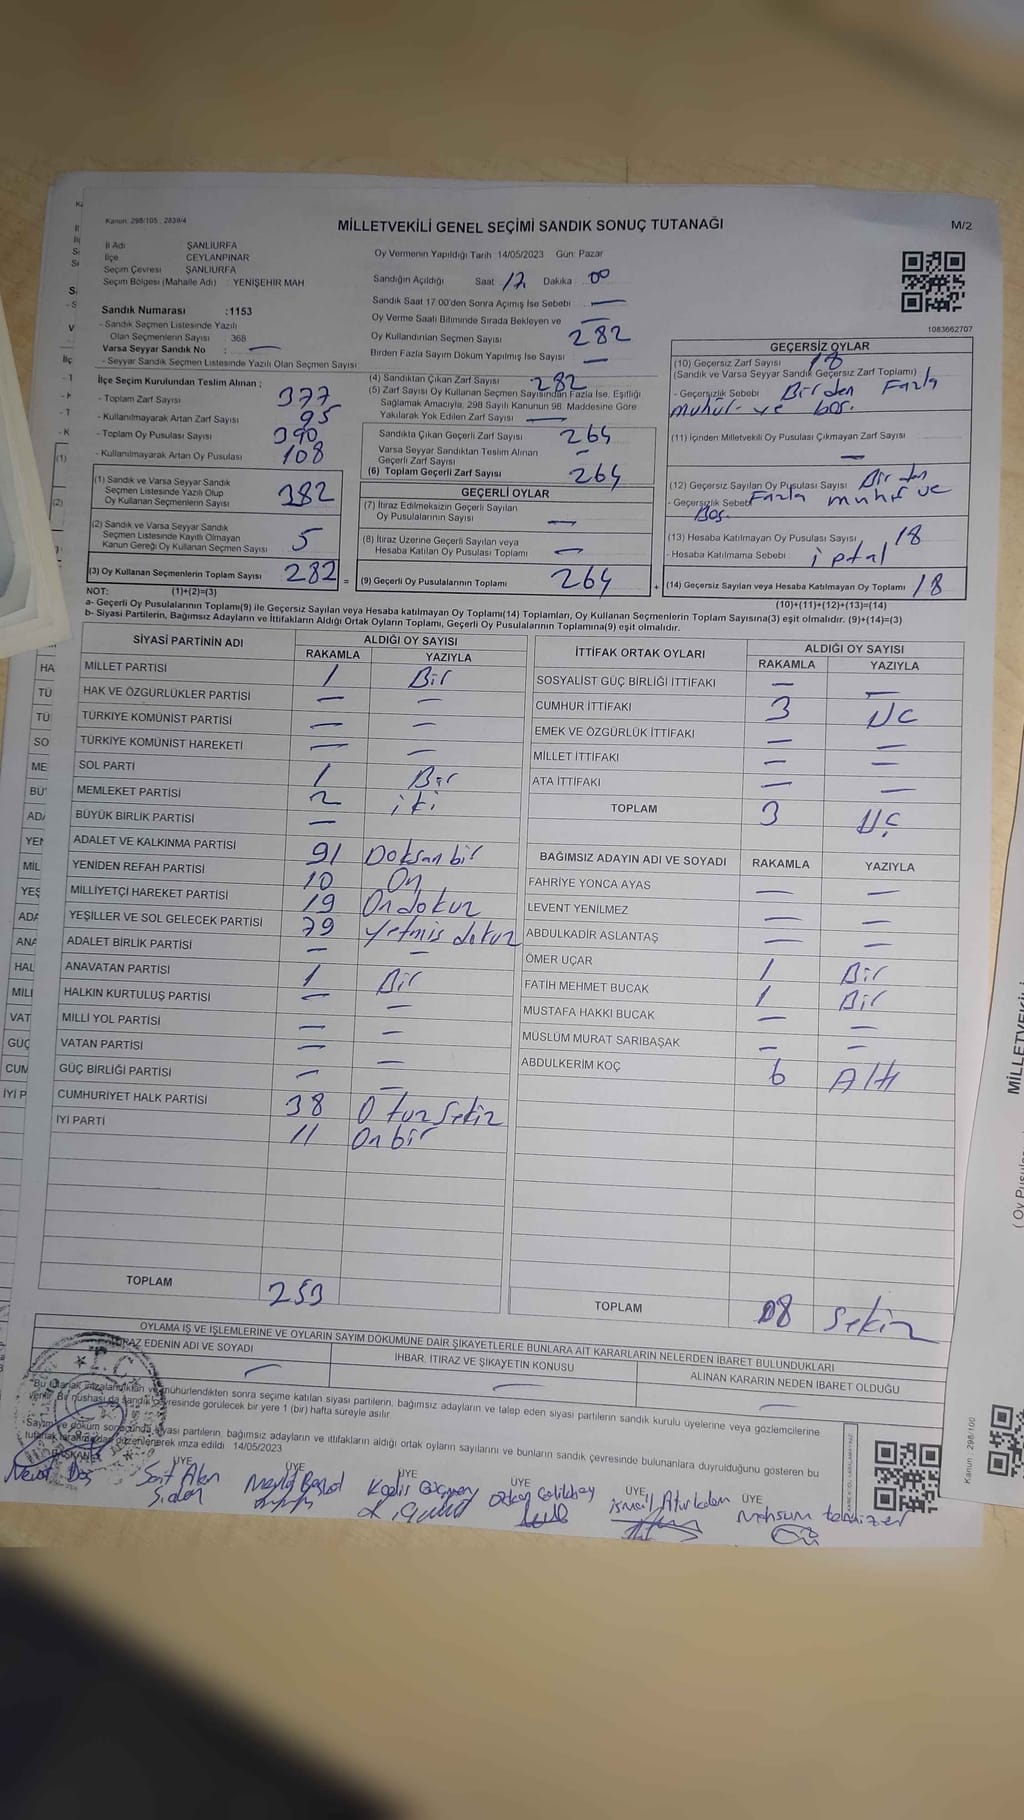 Kanun: 298/105 , 2839/4
MİLLETVEKİLİ GENEL SEÇİMİ SANDIK SONUÇ TUTANAĞI
M/2
İl Adı ŞANLIURFA
İlçe CEYLANPINAR
Seçim Çevresi ŞANLIURFA
Seçim Bölgesi (Mahalle Adı) : YENİŞEHİR MAH
Sandık Numarası :1153
- Sandık Seçmen Listesinde Yazılı
Olan Seçmenlerin Sayısı : 368
Varsa Seyyar Sandık No : —
- Seyyar Sandık Seçmen Listesinde Yazılı Olan Seçmen Sayısı
Oy Vermenin Yapıldığı Tarih 14/05/2023 Gün: Pazar
Sandığın Açıldığı Saat 17 Dakika 00
Sandık Saat 17 00'den Sonra Açımış İse Sebebi —
Oy Verme Saati Bitiminde Sırada Bekleyen ve —
Oy Kullandırılan Seçmen Sayısı 282
Birden Fazla Sayım Döküm Yapılmış İse Sayısı —
1083662707
İlçe Seçim Kurulundan Teslim Alınan ;
- Toplam Zarf Sayısı 377
- Kullanılmayarak Artan Zarf Sayısı 95
- Toplam Oy Pusulası Sayısı 390
- Kullanılmayarak Artan Oy Pusulası 108
(1) Sandık ve Varsa Seyyar Sandık
Seçmen Listesinde Yazılı Olup
Oy Kullanan Seçmenlerin Sayısı 382
(2) Sandık ve Varsa Seyyar Sandık
Seçmen Listesinde Kayıtlı Olmayan
Kanun Gereği Oy Kullanan Seçmen Sayısı 5
(3) Oy Kullanan Seçmenlerin Toplam Sayısı 282 =
(4) Sandıktan Çıkan Zarf Sayısı 282
(5) Zarf Sayısı Oy Kullanan Seçmen Sayısından Fazla İse, Eşitliği
Sağlamak Amacıyla, 298 Sayılı Kanunun 98. Maddesine Göre
Yakılarak Yok Edilen Zarf Sayısı —
Sandıkta Çıkan Geçerli Zarf Sayısı 264
Varsa Seyyar Sandıktan Teslim Alınan
Geçerli Zarf Sayısı
(6) Toplam Geçerli Zarf Sayısı 264
GEÇERLİ OYLAR
(7) İtiraz Edilmeksizin Geçerli Sayılan
Oy Pusulalarının Sayısı —
(8) İtiraz Üzerine Geçerli Sayılan veya
Hesaba Katılan Oy Pusulası Toplamı —
(9) Geçerli Oy Pusulalarının Toplamı 264 +
GEÇERSİZ OYLAR
(10) Geçersiz Zarf Sayısı 18
(Sandık ve Varsa Seyyar Sandık Geçersiz Zarf Toplamı)
- Geçersizlik Sebebi Birden Fazla
muhur- ve boş.
(11) İçinden Milletvekili Oy Pusulası Çıkmayan Zarf Sayısı
—
(12) Geçersiz Sayılan Oy Pusulası Sayısı Birden
- Geçersizlik Sebebi Fazla muhur ve
Boş.
(13) Hesaba Katılmayan Oy Pusulası Sayısı 18
- Hesaba Katılmama Sebebi : iptal
(14) Geçersiz Sayılan veya Hesaba Katılmayan Oy Toplamı 18
NOT: (1)+(2)=(3) (10)+(11)+(12)+(13)=(14)
a- Geçerli Oy Pusulalarının Toplamı(9) ile Geçersiz Sayılan veya Hesaba katılmayan Oy Toplamı(14) Toplamları, Oy Kullanan Seçmenlerin Toplam Sayısına(3) eşit olmalıdır. (9)+(14)=(3)
b- Siyasi Partilerin, Bağımsız Adayların ve İttifakların Aldığı Ortak Oyların Toplamı, Geçerli Oy Pusulalarının Toplamına(9) eşit olmalıdır.
SİYASİ PARTİNİN ADI ALDIĞI OY SAYISI
RAKAMLA YAZIYLA
MİLLET PARTİSİ 1 Bir
HAK VE ÖZGÜRLÜKLER PARTİSİ — —
TÜRKİYE KOMÜNİST PARTİSİ — —
TÜRKİYE KOMÜNİST HAREKETİ — —
SOL PARTİ 1 Bir
MEMLEKET PARTİSİ 2 iki
BÜYÜK BİRLİK PARTİSİ —
ADALET VE KALKINMA PARTİSİ 91 Doksan bir
YENİDEN REFAH PARTİSİ 10 On
MİLLİYETÇİ HAREKET PARTİSİ 19 On dokuz
YEŞİLLER VE SOL GELECEK PARTİSİ 79 Yetmiş dokuz
ADALET BİRLİK PARTİSİ — —
ANAVATAN PARTİSİ 1 Bir
HALKIN KURTULUŞ PARTİSİ — —
MİLLİ YOL PARTİSİ — —
VATAN PARTİSİ — —
GÜÇ BİRLİĞİ PARTİSİ — —
CUMHURİYET HALK PARTİSİ 38 Otuz Sekiz
İYİ PARTİ 11 On bir
TOPLAM 253
İTTİFAK ORTAK OYLARI ALDIĞI OY SAYISI
RAKAMLA YAZIYLA
SOSYALİST GÜÇ BİRLİĞİ İTTİFAKI — —
CUMHUR İTTİFAKI 3 Uc
EMEK VE ÖZGÜRLÜK İTTİFAKI — —
MİLLET İTTİFAKI — —
ATA İTTİFAKI — —
TOPLAM 3 Uç
BAĞIMSIZ ADAYIN ADI VE SOYADI RAKAMLA YAZIYLA
FAHRİYE YONCA AYAS — —
LEVENT YENİLMEZ — —
ABDULKADİR ASLANTAŞ — —
ÖMER UÇAR 1 Bir
FATİH MEHMET BUCAK 1 Bir
MUSTAFA HAKKI BUCAK — —
MÜSLÜM MURAT SARIBAŞAK — —
ABDULKERİM KOÇ 6 Altı
TOPLAM 08 Sekiz
OYLAMA İŞ VE İŞLEMLERİNE VE OYLARIN SAYIM DÖKÜMÜNE DAİR ŞİKAYETLERLE BUNLARA AİT KARARLARIN NELERDEN İBARET BULUNDUKLARI
İTİRAZ EDENİN ADI VE SOYADI İHBAR, İTİRAZ VE ŞİKAYETİN KONUSU ALINAN KARARIN NEDEN İBARET OLDUĞU
— — —
"Bu tutanak imzalandıktan ve mühürlendikten sonra seçime katılan siyasi partilerin, bağımsız adayların ve talep eden siyasi partilerin sandık kurulu üyelerine veya gözlemcilerine
verilir. Bir nüshası da sandık çevresinde görülecek bir yere 1 (bir) hafta süreyle asılır.
Sayım ve döküm sonucunda siyasi partilerin, bağımsız adayların ve ittifakların aldığı ortak oyların sayılarını ve bunların sandık çevresinde bulunanlara duyrulduğunu gösteren bu
tutanak tarafımızdan düzenlenerek imza edildi. 14/05/2023
BAŞKAN ÜYE ÜYE ÜYE ÜYE ÜYE ÜYE
Sait Alan
Kanun : 298/100